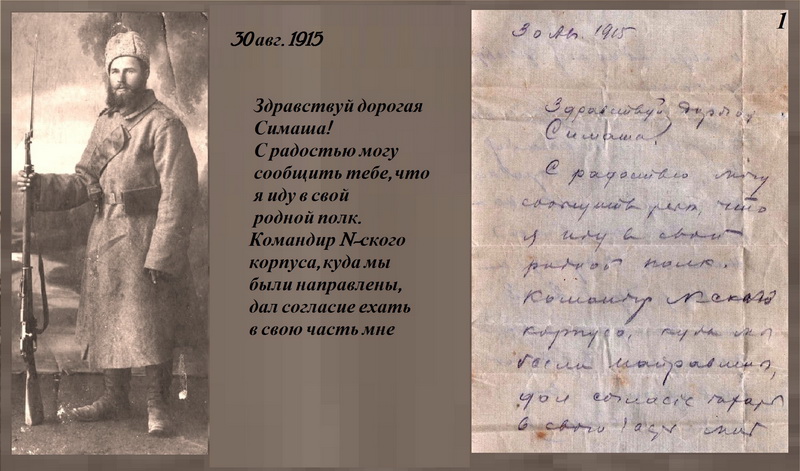 30 авг. 1915
Здравствуй дорогая
Симаша!
С радостью могу
сообщить тебе, что
я иду в свой
родной полк.
Командир N-ского
корпуса, куда мы
были направлены,
дал согласие ехать
в свою часть мне
1
30 Ав. 1915
Здравствуй дорогая
Симаша!
С радостью могу
сообщить тебе, что
я иду в свой
родной полк.
Командир N-ского
корпуса, куда мы
были направлены,
дал согласие ехать
в свою часть мне